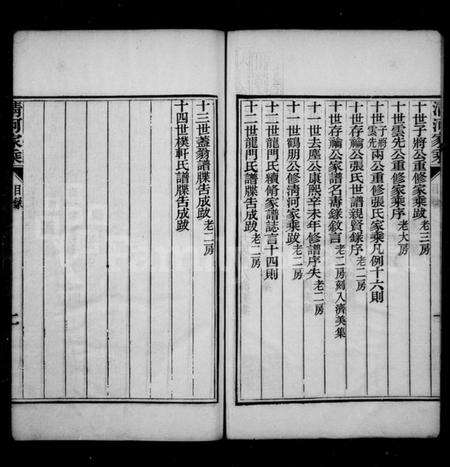 清河家乘
十世子將公重修家乘跋老三房
十世雲先公重修家乘序老大房
十世子將雲先兩公重修張氏家乘凡例十六則
十世存禴公張氏世譜親賢錄序老二房
十世存禴公家譜名壽錄敘言老二房刻入濟美集
十一世去塵公康熙辛未年修譜序失老二房
十一世鶴朋公修清河家乘跋老二房
十二世龍門氏續脩家譜誌言十四則
十二世龍門氏譜牒告成跋老二房
十三世蓋翁譜牒告成跋老二房
十四世樸軒氏譜牒告成跋
清河家乘
目錄
二